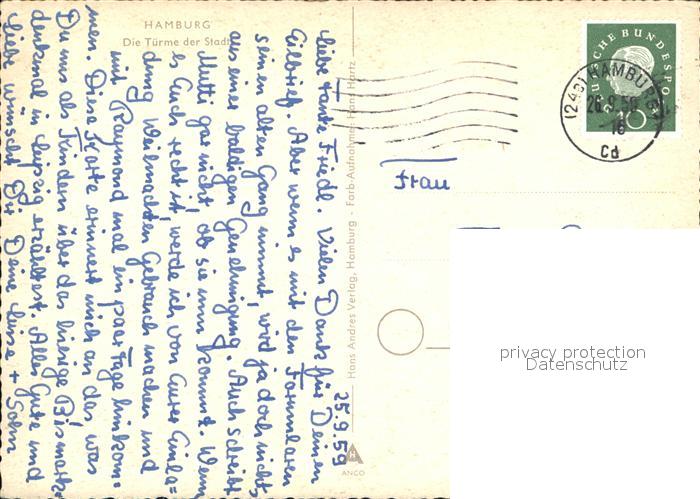 HAMBURG
Die Türme der Stadt
25.9.59
Liebe Tante Friedl. Vielen Dank für Deinen
Eilbrief. Aber wenn es mit den Formularen
seinen alten Gang nimmt, wird ja doch nichts
aus einer baldigen Genehmigung. Auch schreibt
Mutti gar nicht, ob sie nun kommt. Wenn
es Euch recht ist, werde ich von Eurer Einla=
dung Weihnachten Gebrauch machen und
mit Raymond mal ein paar Tage hinkom=
men. Diese Karte erinnert mich an das was
Du uns als Kindern über das hiesige Bismark=
denkmal in Leipzig erzähltest. Alles Gute und
Liebe wünscht Dir Deine + Sohn
Hans Andres Verlag, Hamburg - Farb-Aufnahme: Hans Hartz
ANCO
DEUTSCHE BUNDESPOST
10
(24a) HAMBURG
26.9.59
-16
Cd
Frau
privacy protection
Datenschutz